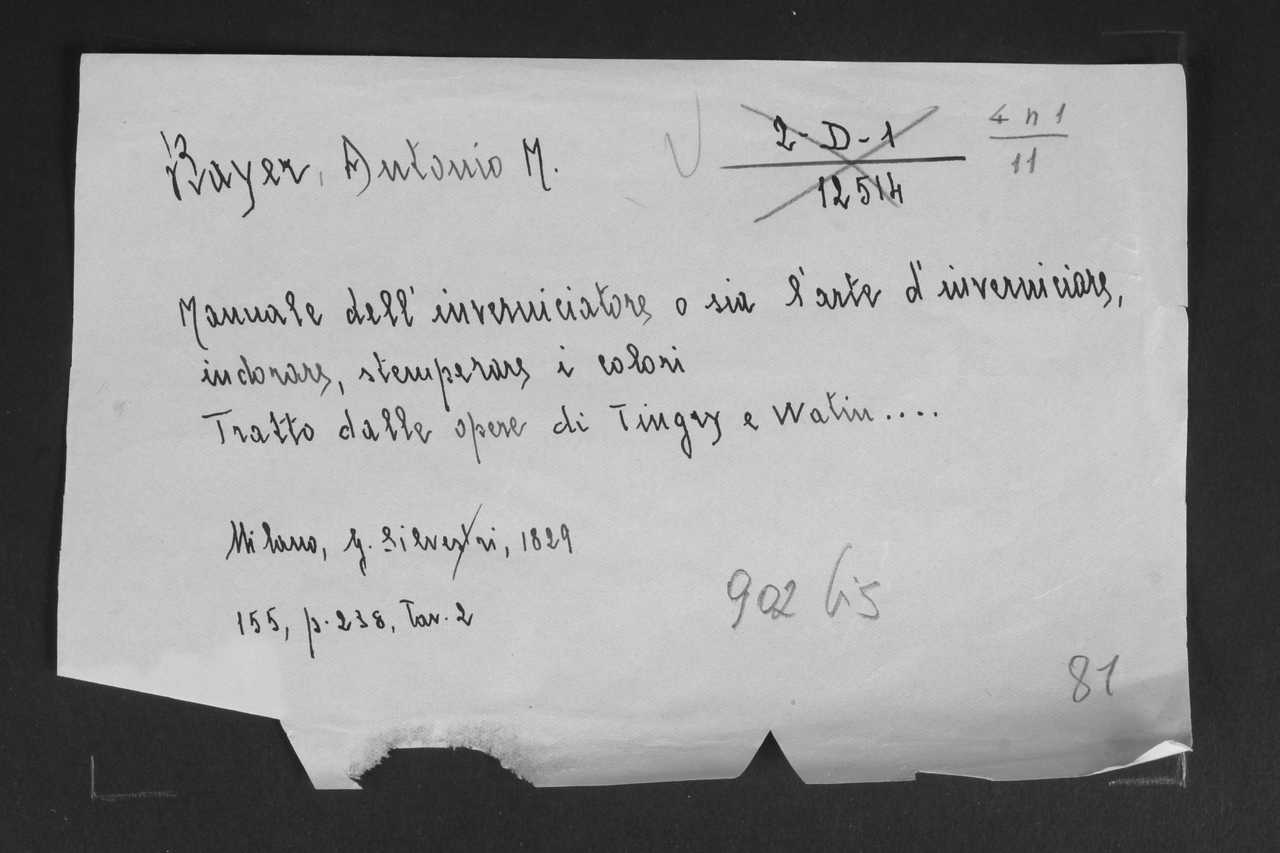 Bayer, Antonio M.
2-D-1
12514
4 n 1
11
Manuale dell'inverniciatore o sia l'arte d'inverniciare,
indorare, stemperare i colori
Tratto dalle opere di Tingry e Watin....
Milano, G. Silvestri, 1829
155, p. 238, Tav. 2
902 bis
81